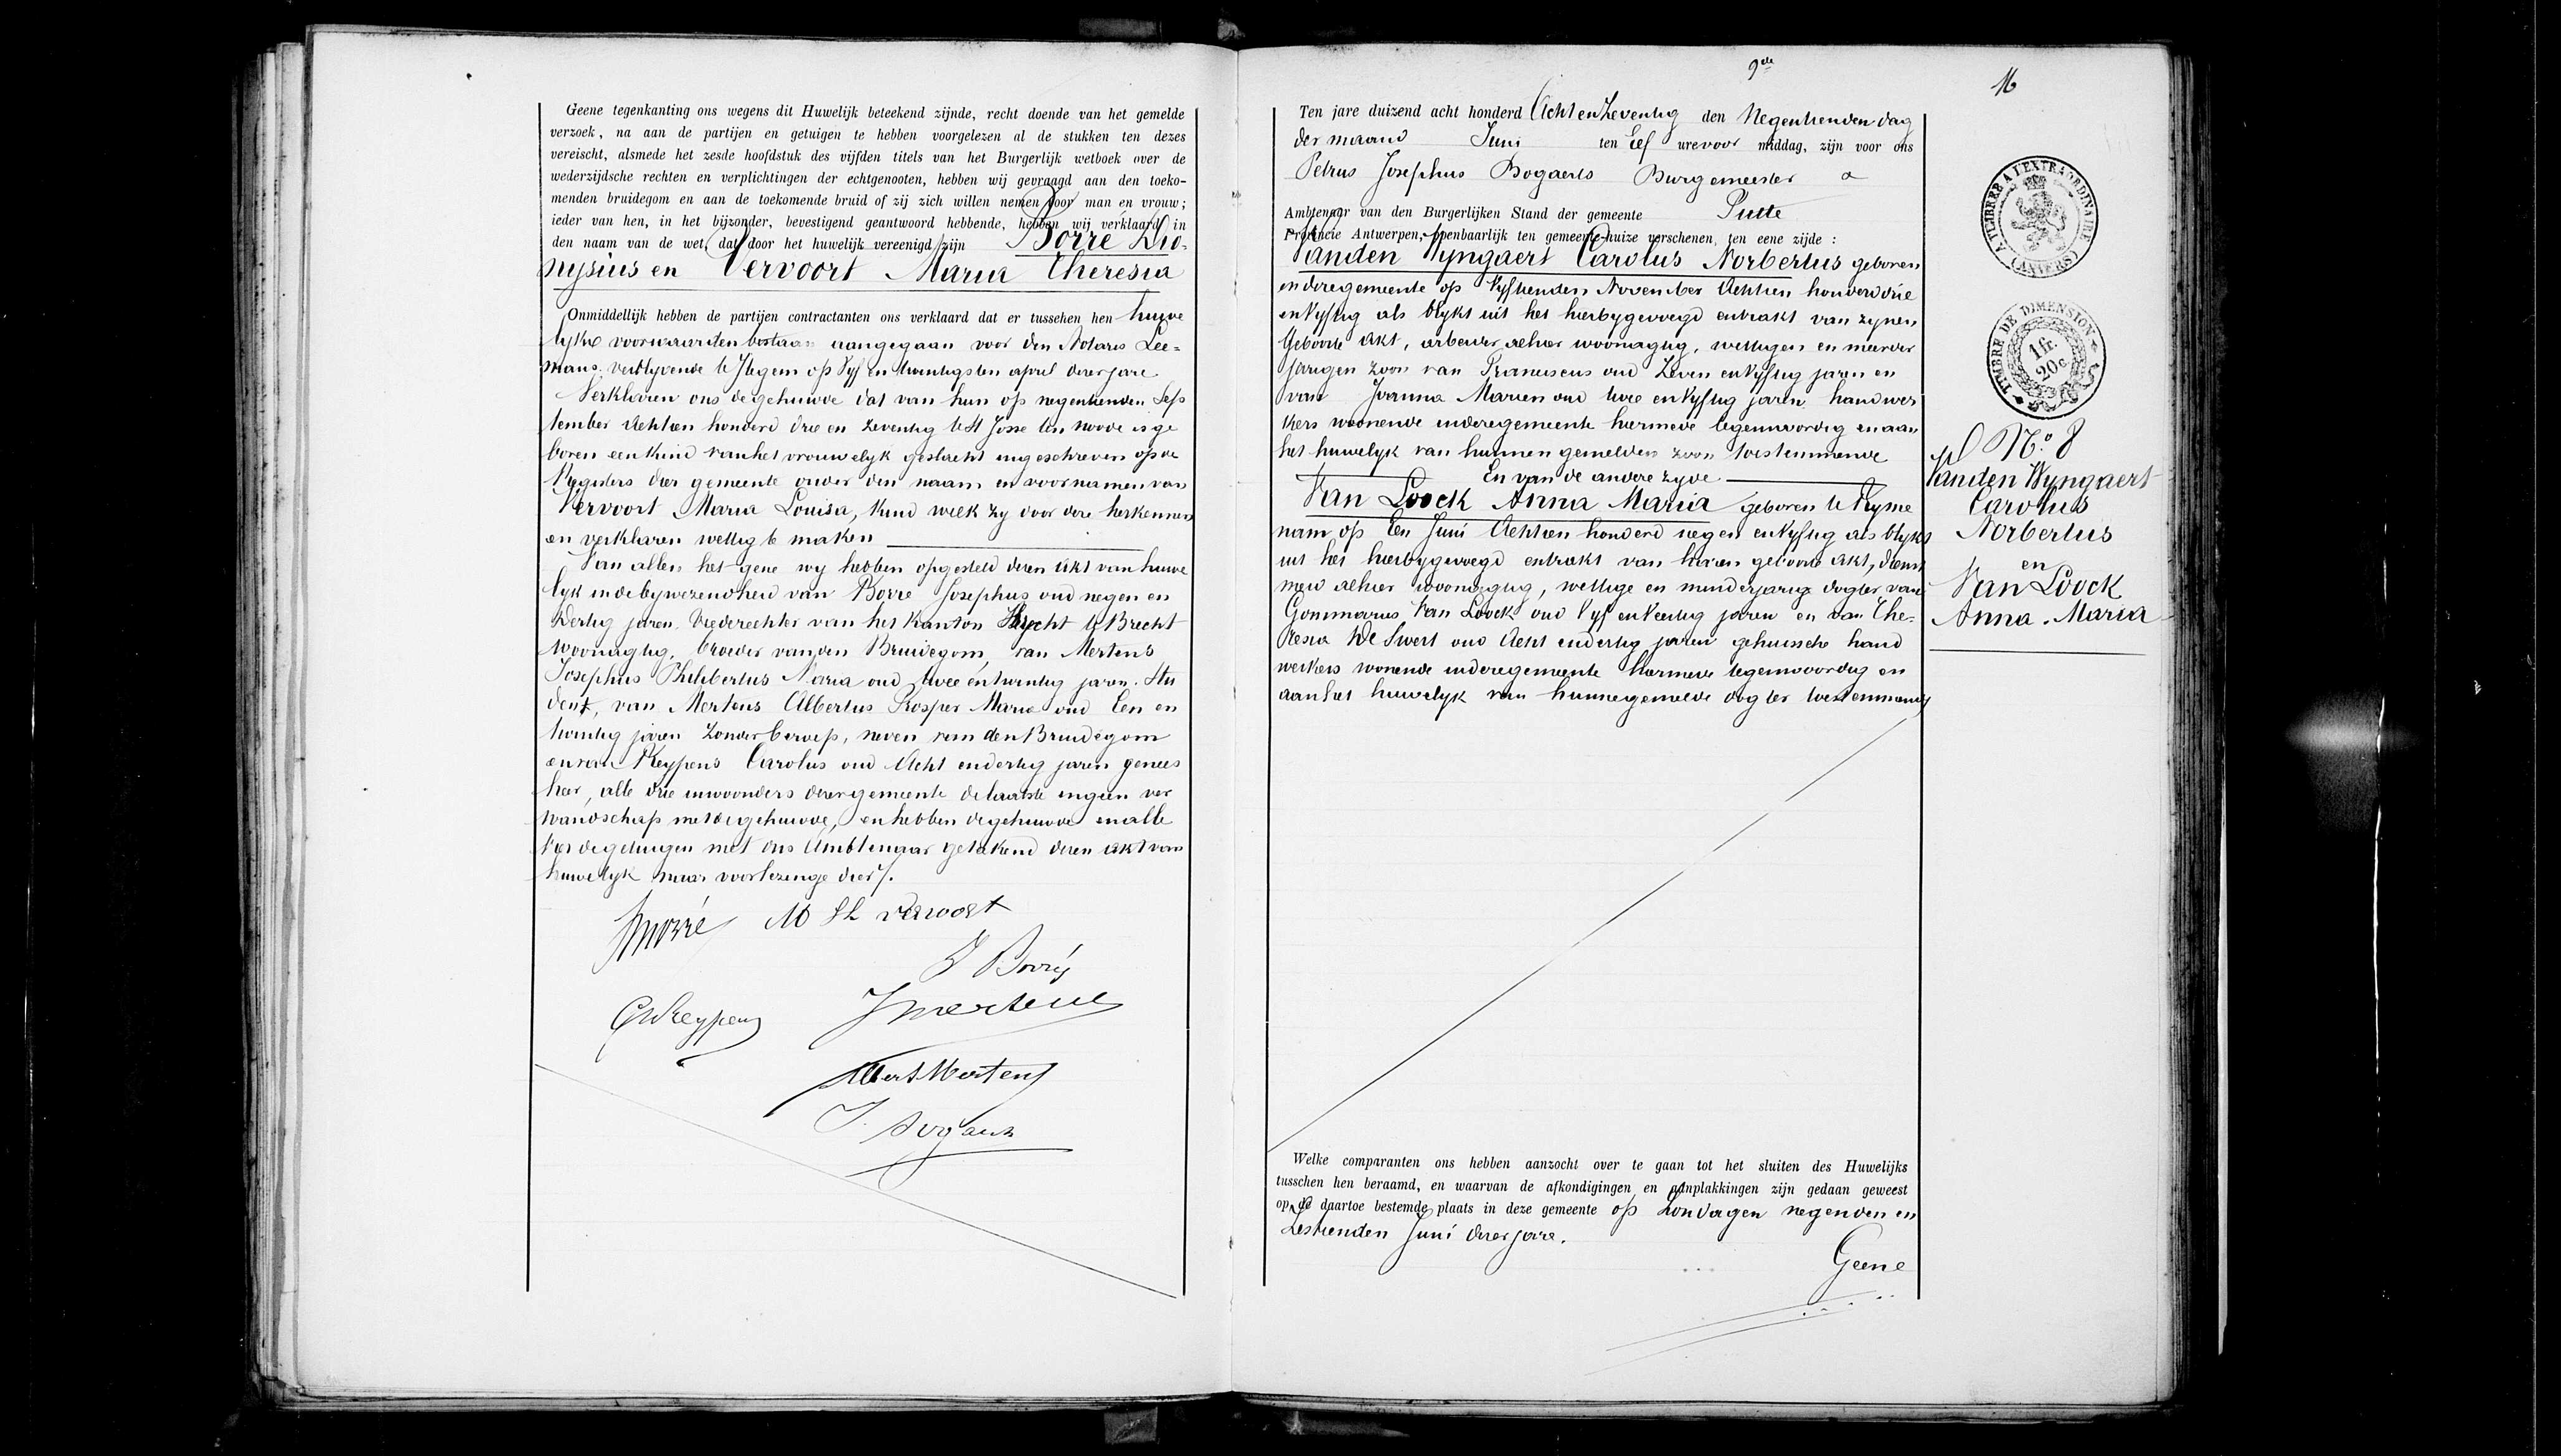 Geene tegenkanting ons wegens dit Huwelijk beteekend zijnde, recht doende van het gemelde
verzoek, na aan de partijen en getuigen te hebben voorgelezen al de stukken ten dezes
vereischt, alsmede het zesde hoofdstuk des vijfden titels van het Burgerlijk wetboek over de
wederzijdsche rechten en verplichtingen der echtgenooten, hebben wij gevraagd aan den toeko-
menden bruidegom en aan de toekomende bruid of zij zich willen nemen voor man en vrouw;
ieder van hen, in het bijzonder, bevestigend geantwoord hebbende, hebben wij verklaard in
den naam van de wet, dat door het huwelijk vereenigd zijn Borré Dio-
nysius en Vervoort Maria Theresia
Onmiddellijk hebben de partijen contractanten ons verklaard dat er tusschen hen huwe
lyke voorwaarden bestaan aangegaan voor den Notaris Lee-
mans verblyvende te Itegem op Vyf en twintigsten april dezer jare
Verklaren ons de gehuwde dat van hun op negentienden Sep
tember Achttien honderd drie en zeventig te St Josse ten noode is ge
boren een kind van het vrouwelyk geslacht ingeschreven op de
Registers dier gemeente onder den naam en voornamen van
Vervoort Maria Louisa, kind welk zy door deze herkennen
en verklaren wettig te maken
Van allen het gene wy hebben opgesteld dezen akt van huwe
lyk in de bywezendheid van Borré Josephus oud negen en
dertig jaren Vrederechter van het kanton Brecht te Brecht
woonagtig, broeder van den Bruidegom, van Mertens
Josephus Philibertus Maria oud twee en twintig jaren. Stu
dent, van Mertens Albertus Prosper Maria oud Een en
twintig jaren zonder beroep, neven van den Bruidegom
en van Keypens Carolus oud Acht en dertig jaren genees
heer, alle drie inwoonders dezer gemeente de laatste in geen ver
wandschap met de gehuwde, en hebben de gehuwde en alle
de getuigen met ons Ambtenaar geteekend dezen akt van
huwelyk naar voorlezinge dier.
M Th Vervoort
J Borré
J Mertens
Albert Mertens
9de
16
Ten jare duizend acht honderd Acht en Zeventig den Negentienden dag
der maand Juni ten Elf ure voor middag, zijn voor ons
Petrus Josephus Bogaerts Burgemeester
Ambtenaar van den Burgerlijken Stand der gemeente Putte
Provincie Antwerpen, openbaarlijk ten gemeente-huize verschenen, ten eene zijde :
Vanden Wyngaert Carolus Norbertus geboren
in dezegemeente op Vyftienden November Achttien honderd drie
en Vyftig als blykt uit het hierbygevoegd extrakt van zynen
Geboorte akt, arbeider alhier woonagtig, wettigen en meerder
jarigen zoon van Franciscus oud Zeven en Vyftig jaren en
van Joanna Marien oud twee en Vyftig jaren, handwer
kers woonende in dezegemeente hiermede tegenwoordig en aan
het huwelyk van hunnen gemelden zoon toestemmende
En van de andere zyde
Van Loock Anna Maria geboren te Ryme
nam op Een Juni Achttien honderd negen en Vyftig als blykt
uit het hierbygevoegd extrakt van haren geboorte akt, dienst
meid alhier woonagtig, wettige en minderjarige dogter van
Gommarus Van Loock oud Vyf en Veertig jaren en van The-
resia De Swert oud Acht en dertig jaren gehuischte hand
werkers wonende in dezegemeente hiermede tegenwoordig en
aan het huwelyk van hunne gemelde dogter toestemmende
Welke comparanten ons hebben aanzocht over te gaan tot het sluiten des Huwelijks
tusschen hen beraamd, en waarvan de afkondigingen en aanplakkingen zijn gedaan geweest
op de daartoe bestemde plaats in deze gemeente op zondagen negenden en
Zestienden Juni dezer jare.
Geene
A TIMBRE A L'EXTRAORDINAIRE
(ANVERS)
TIMBRE DE DIMENSION
1 fr.
20 c
N° 8
Vanden Wyngaert
Carolus
Norbertus
en
Van Loock
Anna. Maria